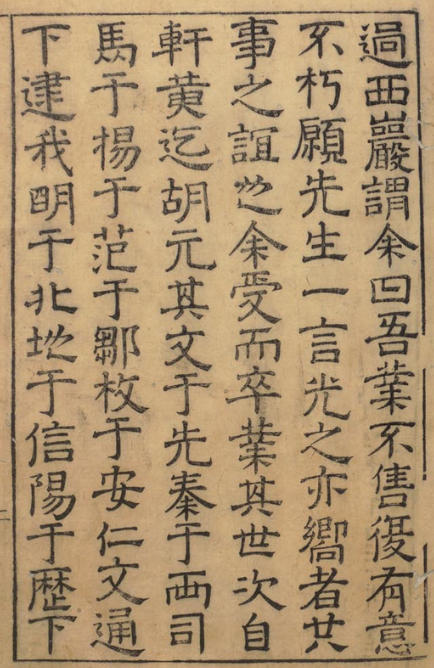 過西巖謂余曰吾業不售復有意
不朽願先生一言光之亦嚮者共
事之誼也余受而卒業其世次自
軒黃迄胡元其文于先秦于西司
馬于楊于范于鄒枚于安仁文通
下逮我眀于北地于信陽于歷下